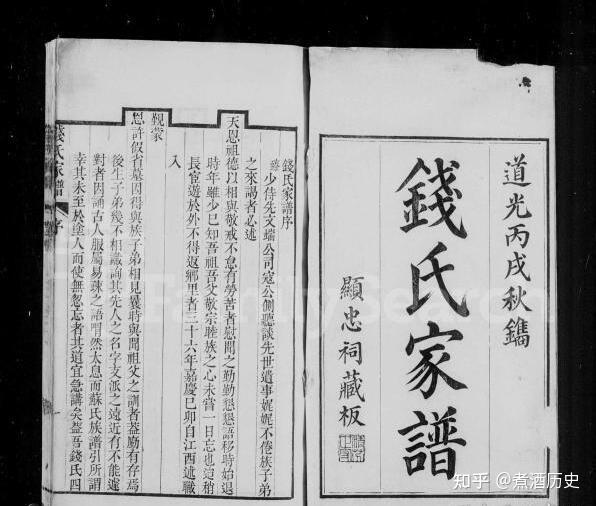 道光丙戌秋鐫
錢氏家譜
顯忠祠藏板
錢氏家譜序
臻少侍先文端公司寇公側聽談先世遺事娓娓不倦族子弟
之來謁者必述
天恩祖德以相與敬戒不怠有勞苦者慰問之勤勤懇懇語移時始退
時年雖少已知吾祖吾父敬宗睦族之心未嘗一日忘也迨稍
長宦遊於外不得返鄉里者三十六年嘉慶己卯自江西述職
入
覲蒙
恩許假省墓因得與族子弟相見曩時與聞祖父之訓者蓋勵有存焉
後生子弟幾不相識詢其先人之名字支派之遠近有不能遽
對者因誦古人服屬易疎之語喟然太息而蘇氏族譜引所謂
幸其未至於塗人而使無忽忘者其道宜急講矣蓋吾錢氏四
錢氏家譜 序
FamilySearch
知乎 @煮酒历史